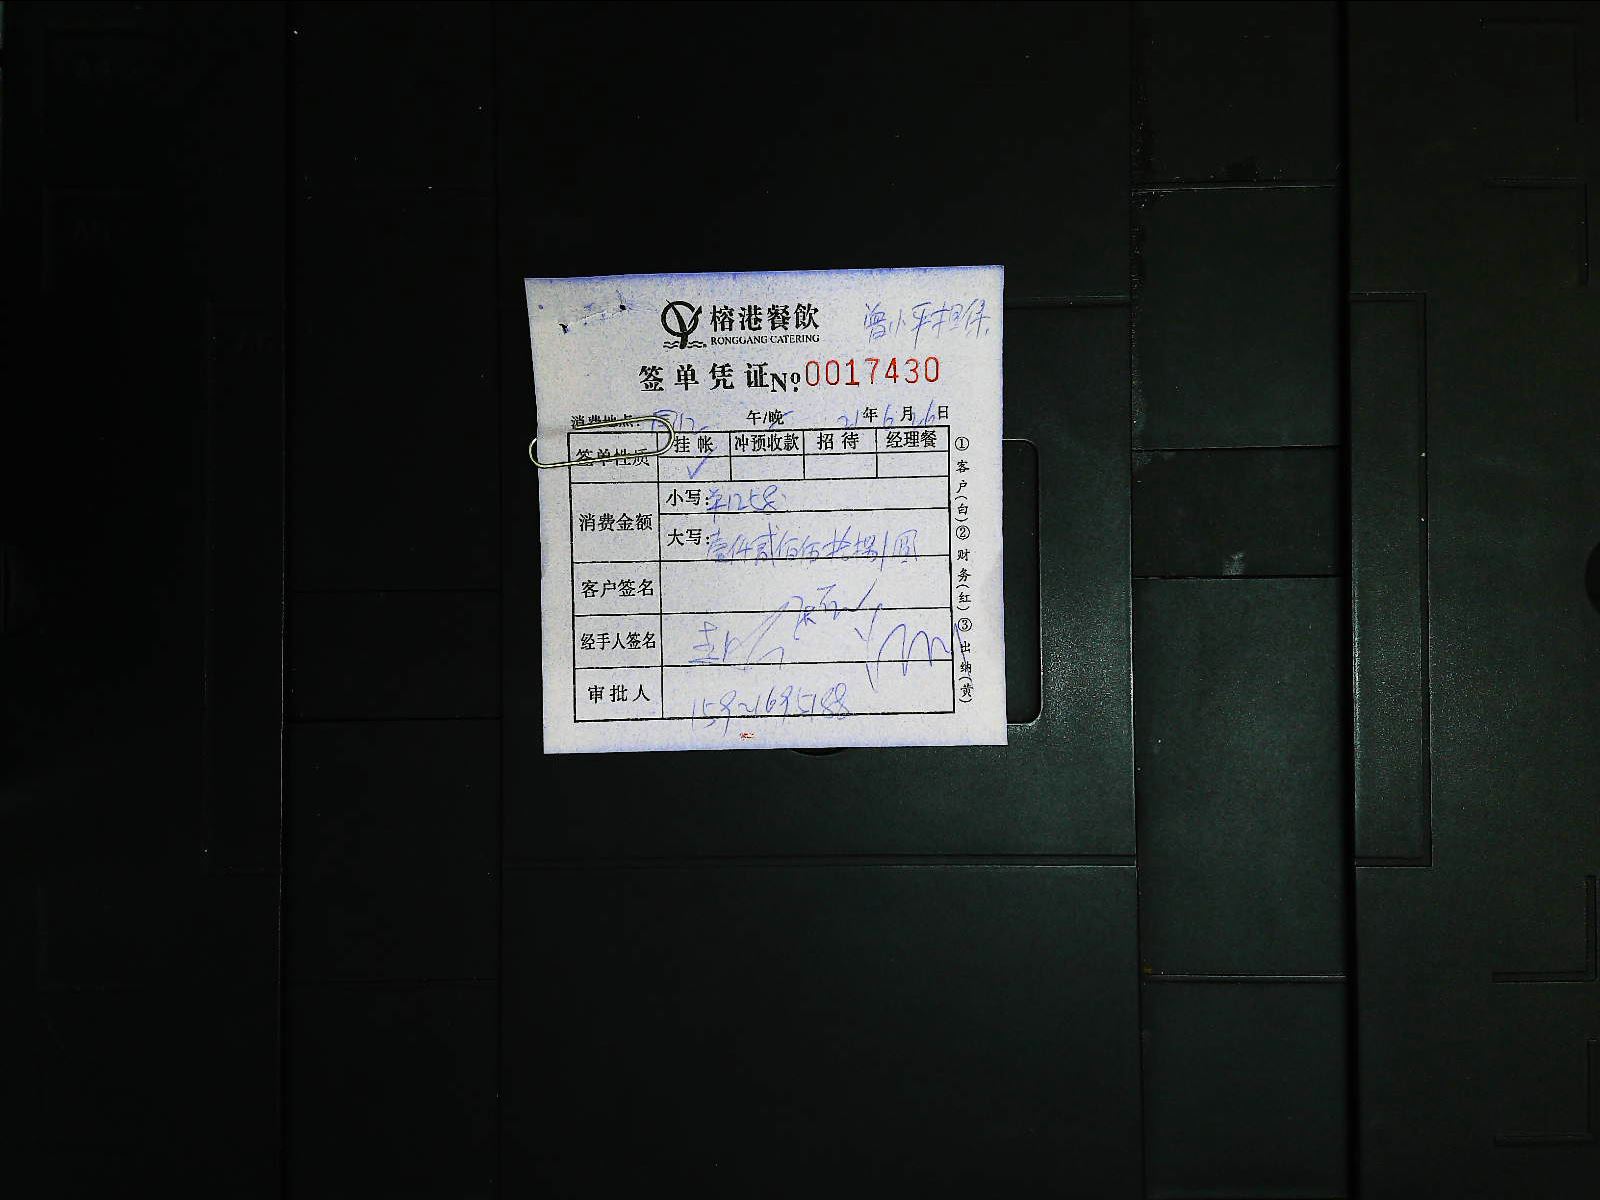 榕港餐飲
RONGGANG CATERING
曾小平担保
签单凭证 №:0017430
消费地点: 午/晚 21年6月26日
签单性质 挂帐 冲预收款 招待 经理餐
✓
消费金额 小写:¥1258
大写:壹仟贰佰伍拾捌圆
客户签名
经手人签名
审批人
15921695188
①客户(白)②财务(红)③出纳(黄)